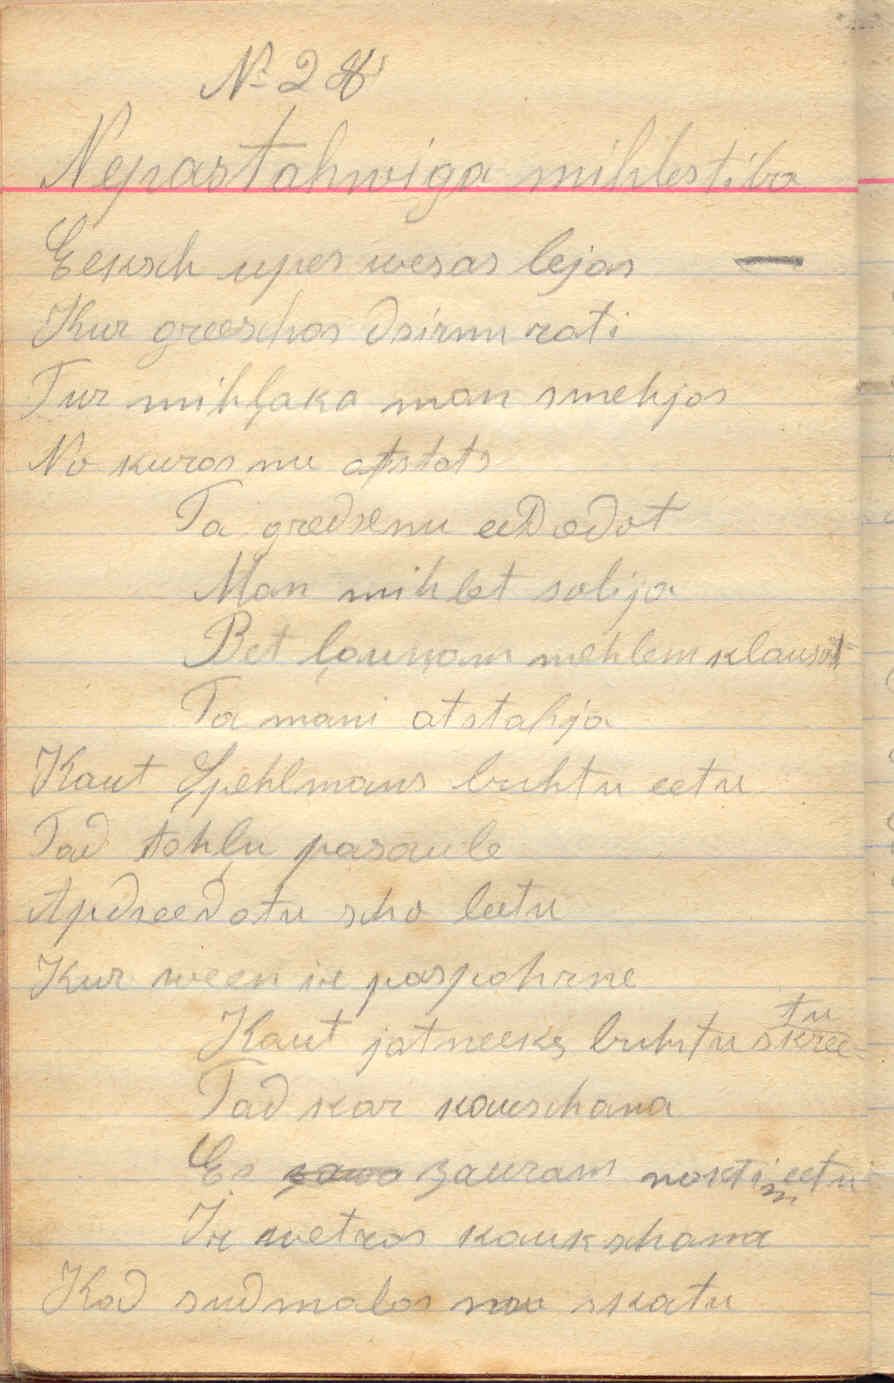 № 28
Nepastahwiga mihlestiba
Eeksch upes wesas lejas
Kur greeschas dsirnu rati
Tur mihļaka man smehjos
No kuras nu atstats
Ta gredsenu eedodot
Man mihlet solija
Bet ļauņam mehlem klausot
Ta mani atstahja
Kaut Spehlmans buhtu eetu
Tad tahļu pasaule
Apdseedatu scho leetu
Kur ween ir paspahrne
Kaut jatneeks buhtu skreetu
Tad kar kauschana
Es zauram naktim eetu
Ir wetras kaukschana
Kad sudmalas nau skatu